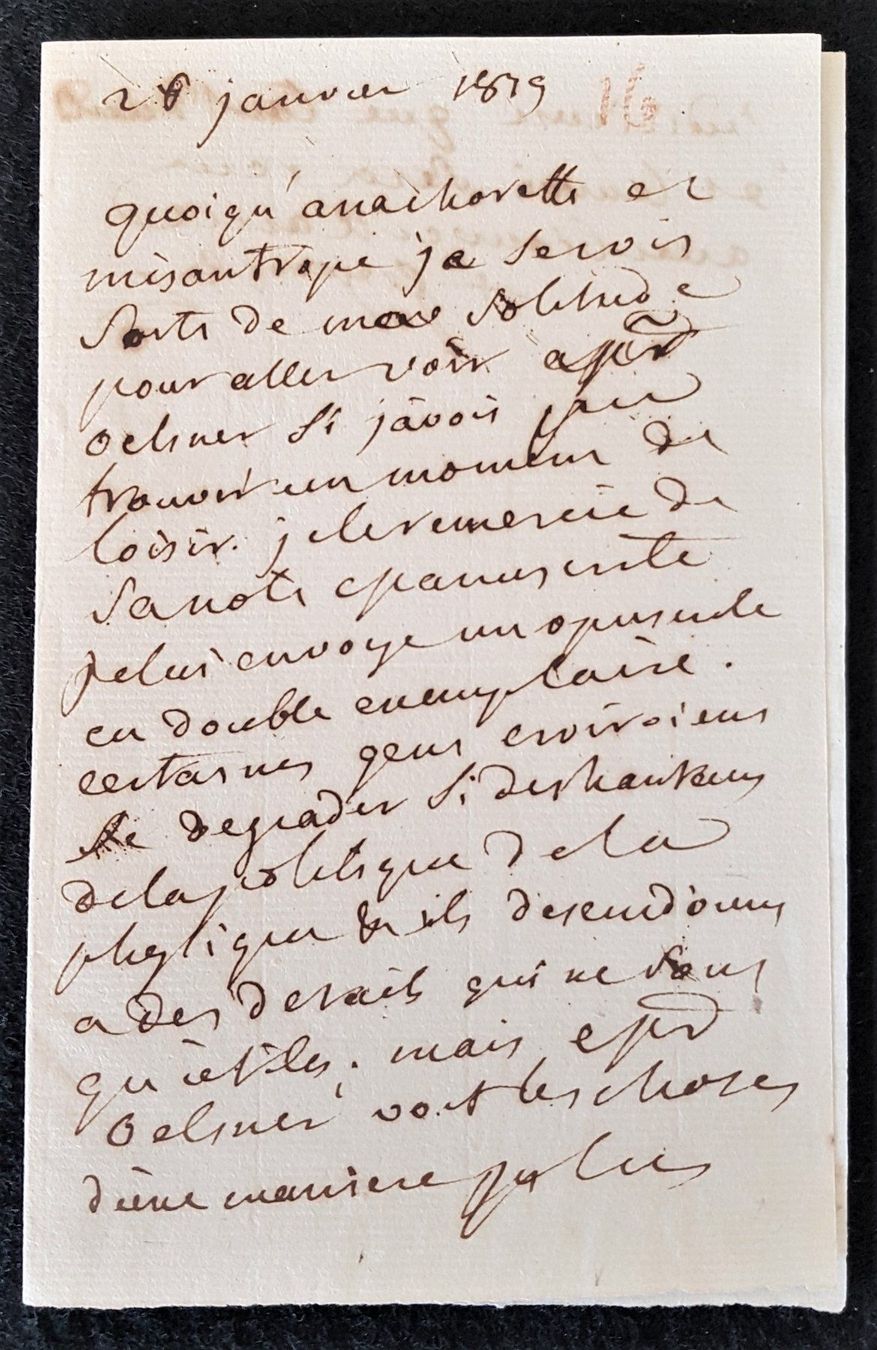 28 janvier 1819 16
quoiqu'anachorette et
misantrope je serois
sorti de ma solitude
pour aller voir Mr
oelsner si j'avois pu
trouver un moment de
loisir. je le remercie de
sa note manuscrite
je lui envoye un opuscule
en double exemplaire.
certaines gens croiroient
se degrader si des hauteurs
de la politique de la
physique &c ils descendoient
a des details qui ne sont
qu'utiles. mais Mr
Oelsner voit les choses
d'une maniere plus